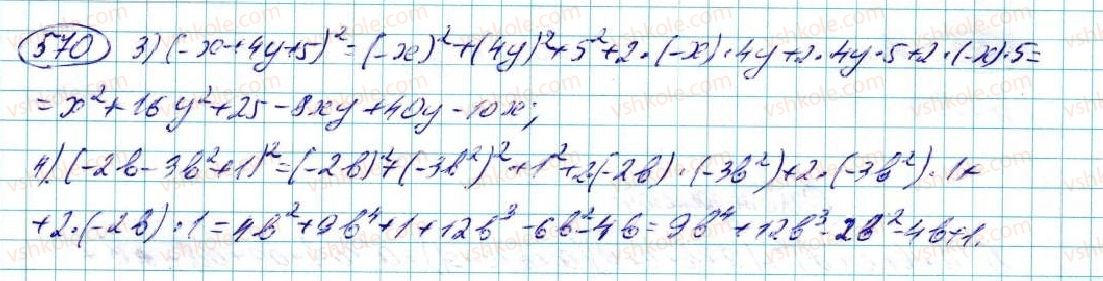 570 3) (-x+4y+5)² = (-x)² + (4y)² + 5² + 2·(-x)·4y + 2·4y·5 + 2·(-x)·5 =
= x² + 16y² + 25 - 8xy + 40y - 10x;
4) (-2b - 3b² + 1)² = (-2b)² + (-3b²)² + 1² + 2·(-2b)·(-3b²) + 2·(-3b²)·1 +
+ 2·(-2b)·1 = 4b² + 9b⁴ + 1 + 12b³ - 6b² - 4b = 9b⁴ + 12b³ - 2b² - 4b + 1.